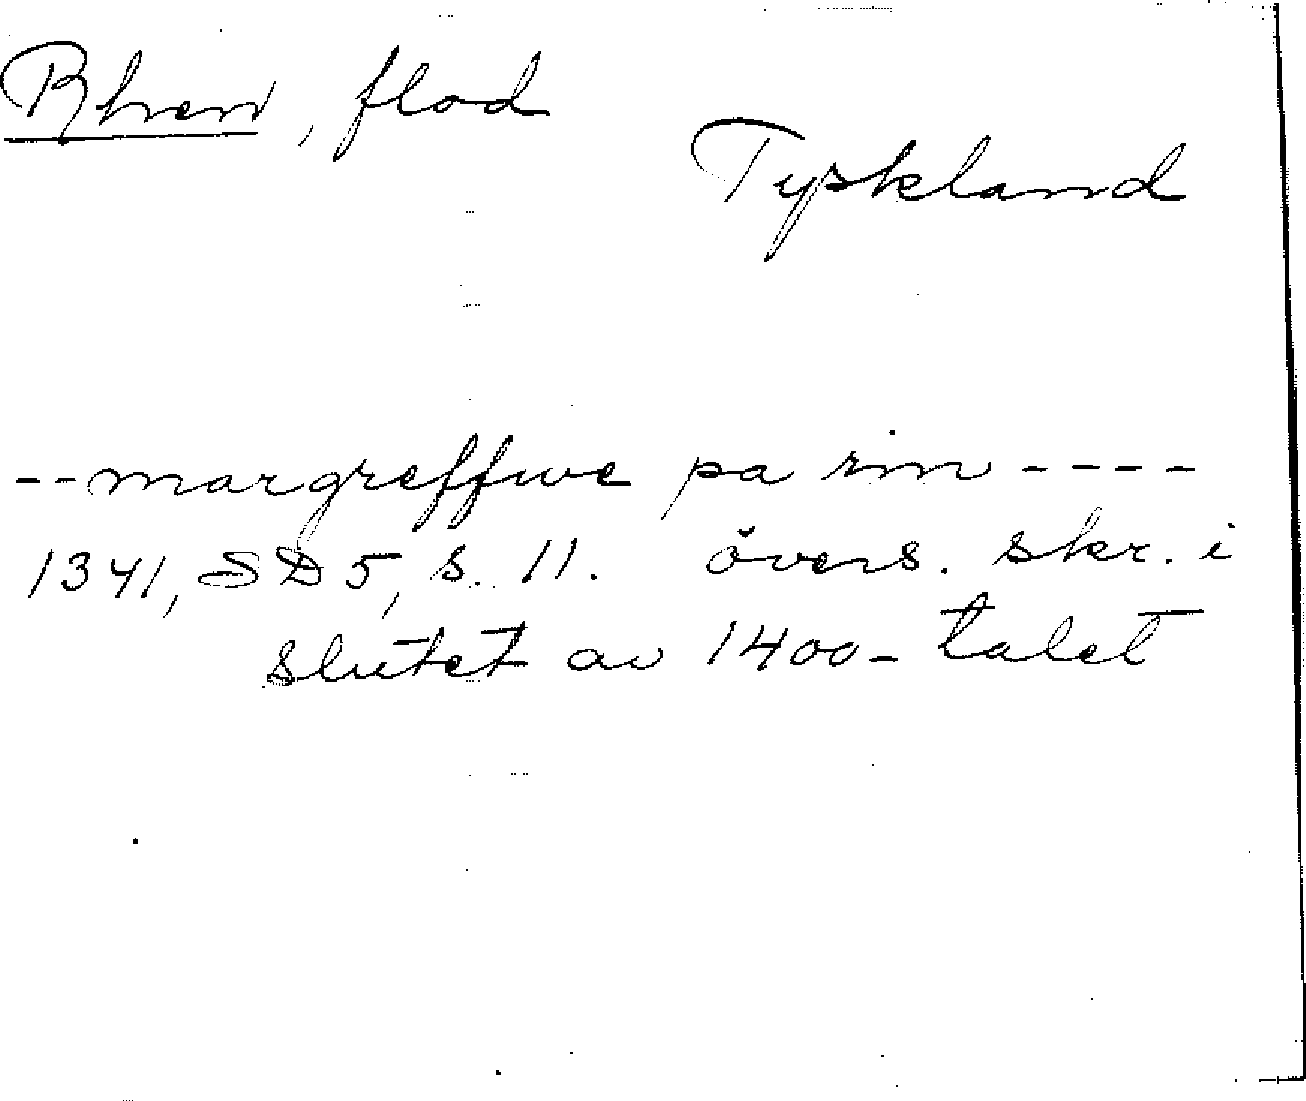 Rhen, flod
Tyskland
--margreffwe pa rin ----
1341, SD 5, s. 11. övers. skr. i
slutet av 1400-talet